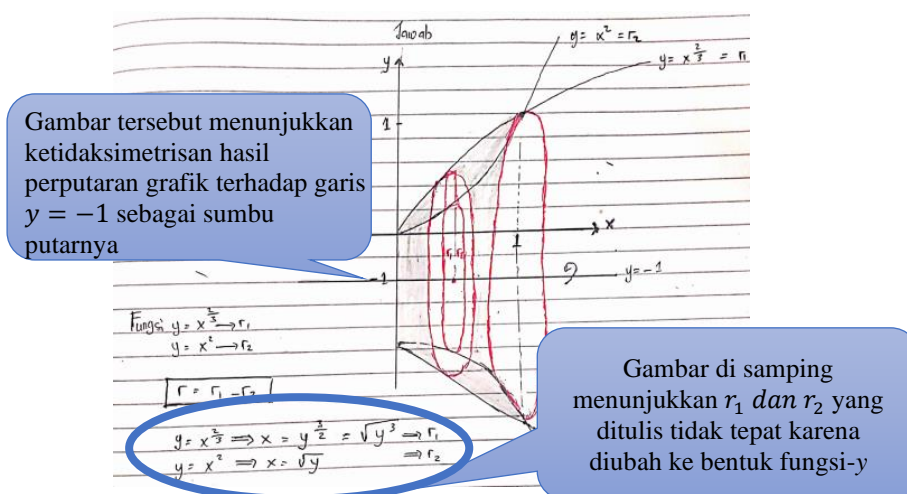 Jawab
y
y = x² = r₂
y = x^(2/3) = r₁
1
Gambar tersebut menunjukkan
ketidaksimetrisan hasil
perputaran grafik terhadap garis
y = −1 sebagai sumbu
putarnya
x
1
-1
y = -1
Fungsi y = x^(2/3) → r₁
y = x² → r₂
r = r₁ - r₂
y = x^(2/3) ⟹ x = y^(3/2) = √y³ ⟹ r₁
y = x² ⟹ x = √y ⟹ r₂
Gambar di samping
menunjukkan r₁ dan r₂ yang
ditulis tidak tepat karena
diubah ke bentuk fungsi-y